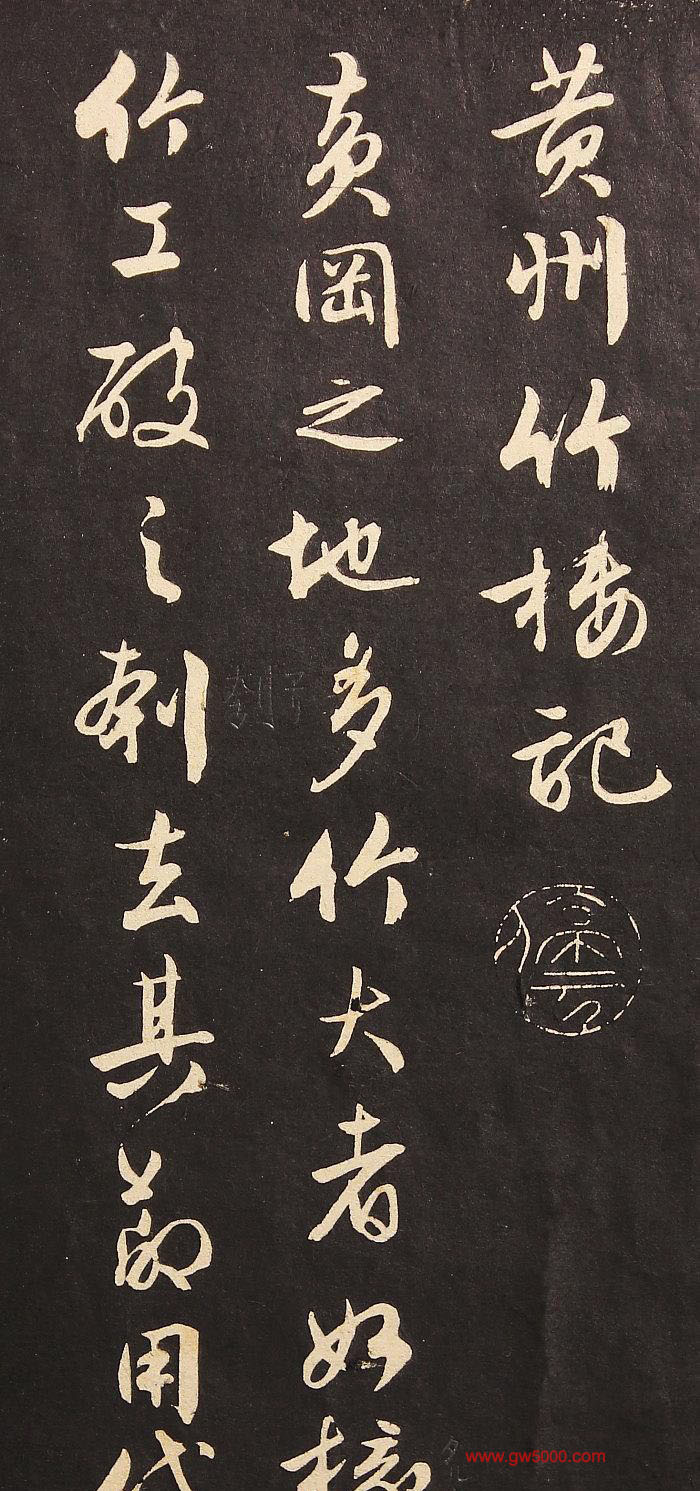 黄州竹樓記
黄岡之地多竹大者如椽
竹工破之刳去其節用代
www.gw5000.com